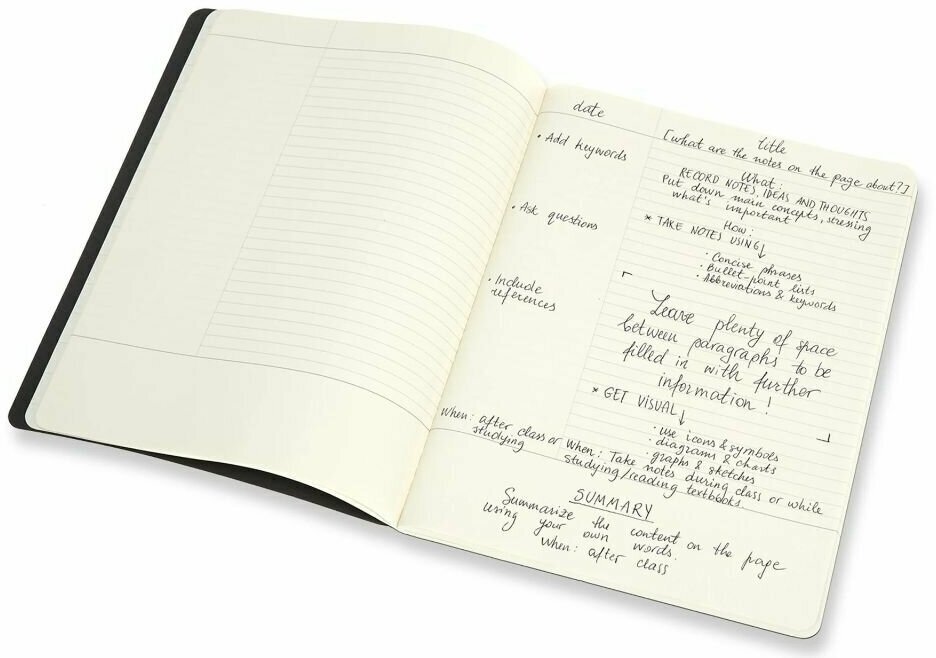 date
• Add keywords
• Ask questions
• Include
references
When: after class or
studying
Title
[what are the notes on the page about?]
What:
RECORD NOTES, IDEAS AND THOUGHTS
Put down main concepts, stressing
what's important
How:
* TAKE NOTES USING↓
• Concise phrases
• Bullet-point lists
• Abbreviations & keywords
Leave plenty of space
between paragraphs to be
filled in with further
information!
* GET VISUAL↓
• use icons & symbols
• diagrams & charts
• graphs & sketches
When: Take notes during class or while
studying/reading textbooks.
SUMMARY
Summarize the content on the page
using your own words.
When: after class